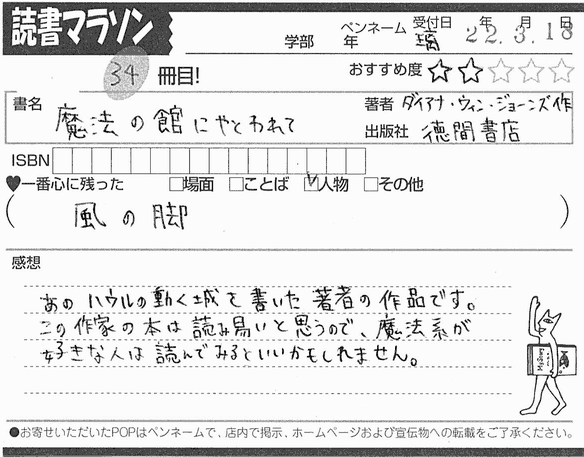 読書マラソン
学部 年 ペンネーム 璃 受付日 22年3月18日
34 冊目!
おすすめ度 ☆☆☆☆☆
書名 魔法の館にやとわれて
著者 ダイアナ・ウィン・ジョーンズ作
出版社 徳間書店
ISBN
♥一番心に残った □場面 □ことば ☑人物 □その他
( 風の脚 )
感想
あのハウルの動く城を書いた著者の作品です。
この作家の本は読み易いと思うので、魔法系が
好きな人は読んでみるといいかもしれません。
●お寄せいただいたPOPはペンネームで、店内で掲示、ホームページおよび宣伝物への転載をご了承ください。